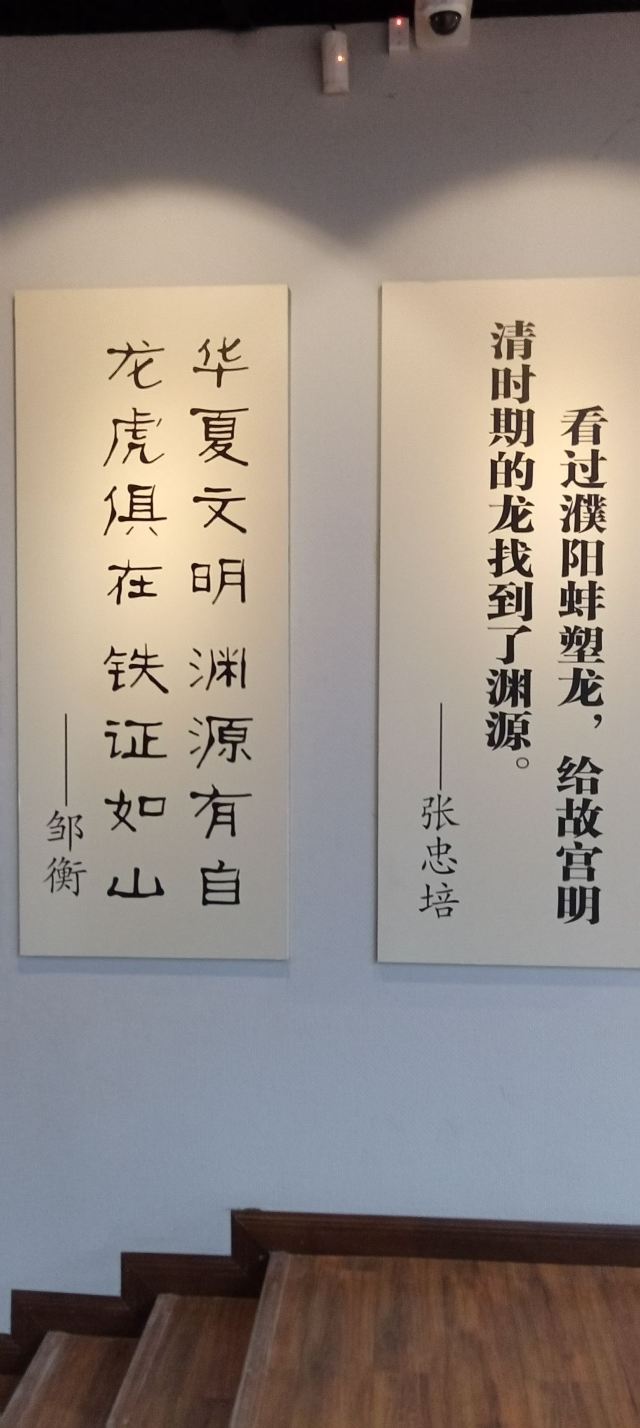 看过濮阳蚌塑龙，给故宫明
清时期的龙找到了渊源。
——张忠培
华夏文明渊源有自
龙虎俱在铁证如山
——邹衡